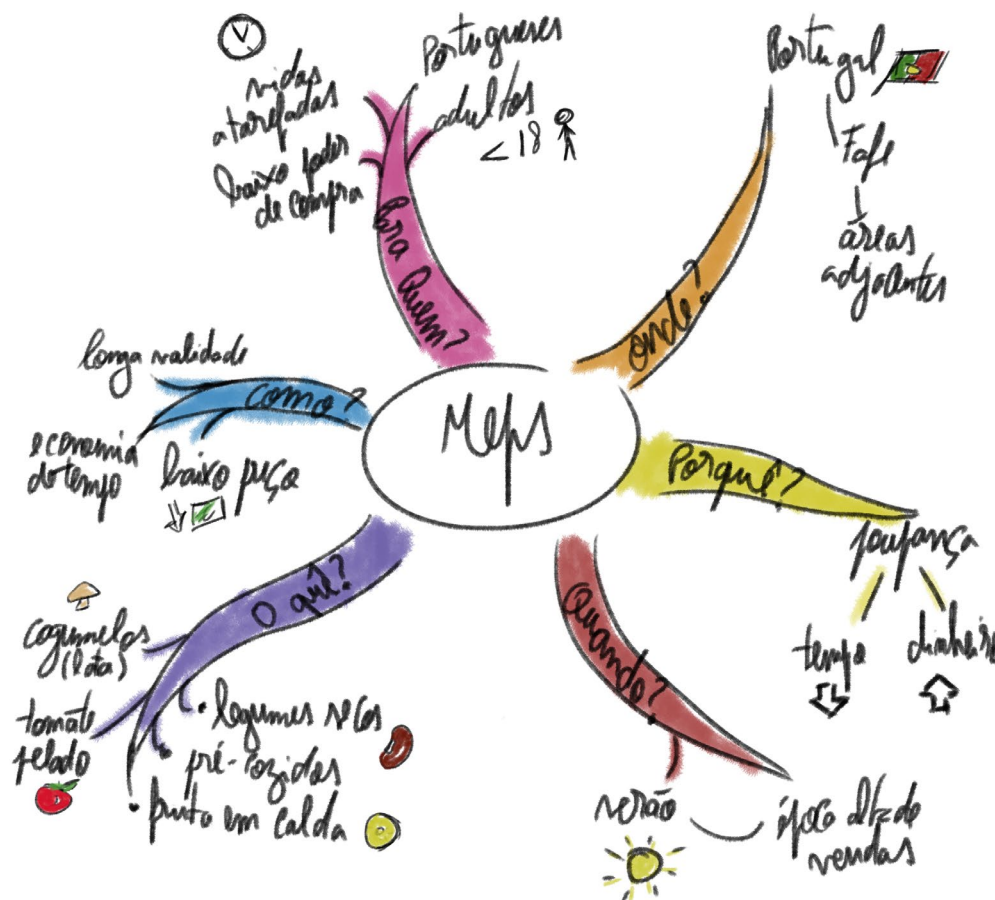 Meps
Para Quem?
vidas
atarefadas
baixo poder
de compra
Portugueses
adultos
<18
Onde?
Portugal
Fafe
áreas
adjacentes
Porquê?
poupança
tempo
dinheiro
Quando?
verão
época alta de
vendas
O quê?
cogumelos
(lata)
tomate
pelado
• legumes secos
• pré-cozidos
• fruta em calda
Como?
longa validade
economia
de tempo
baixo preço